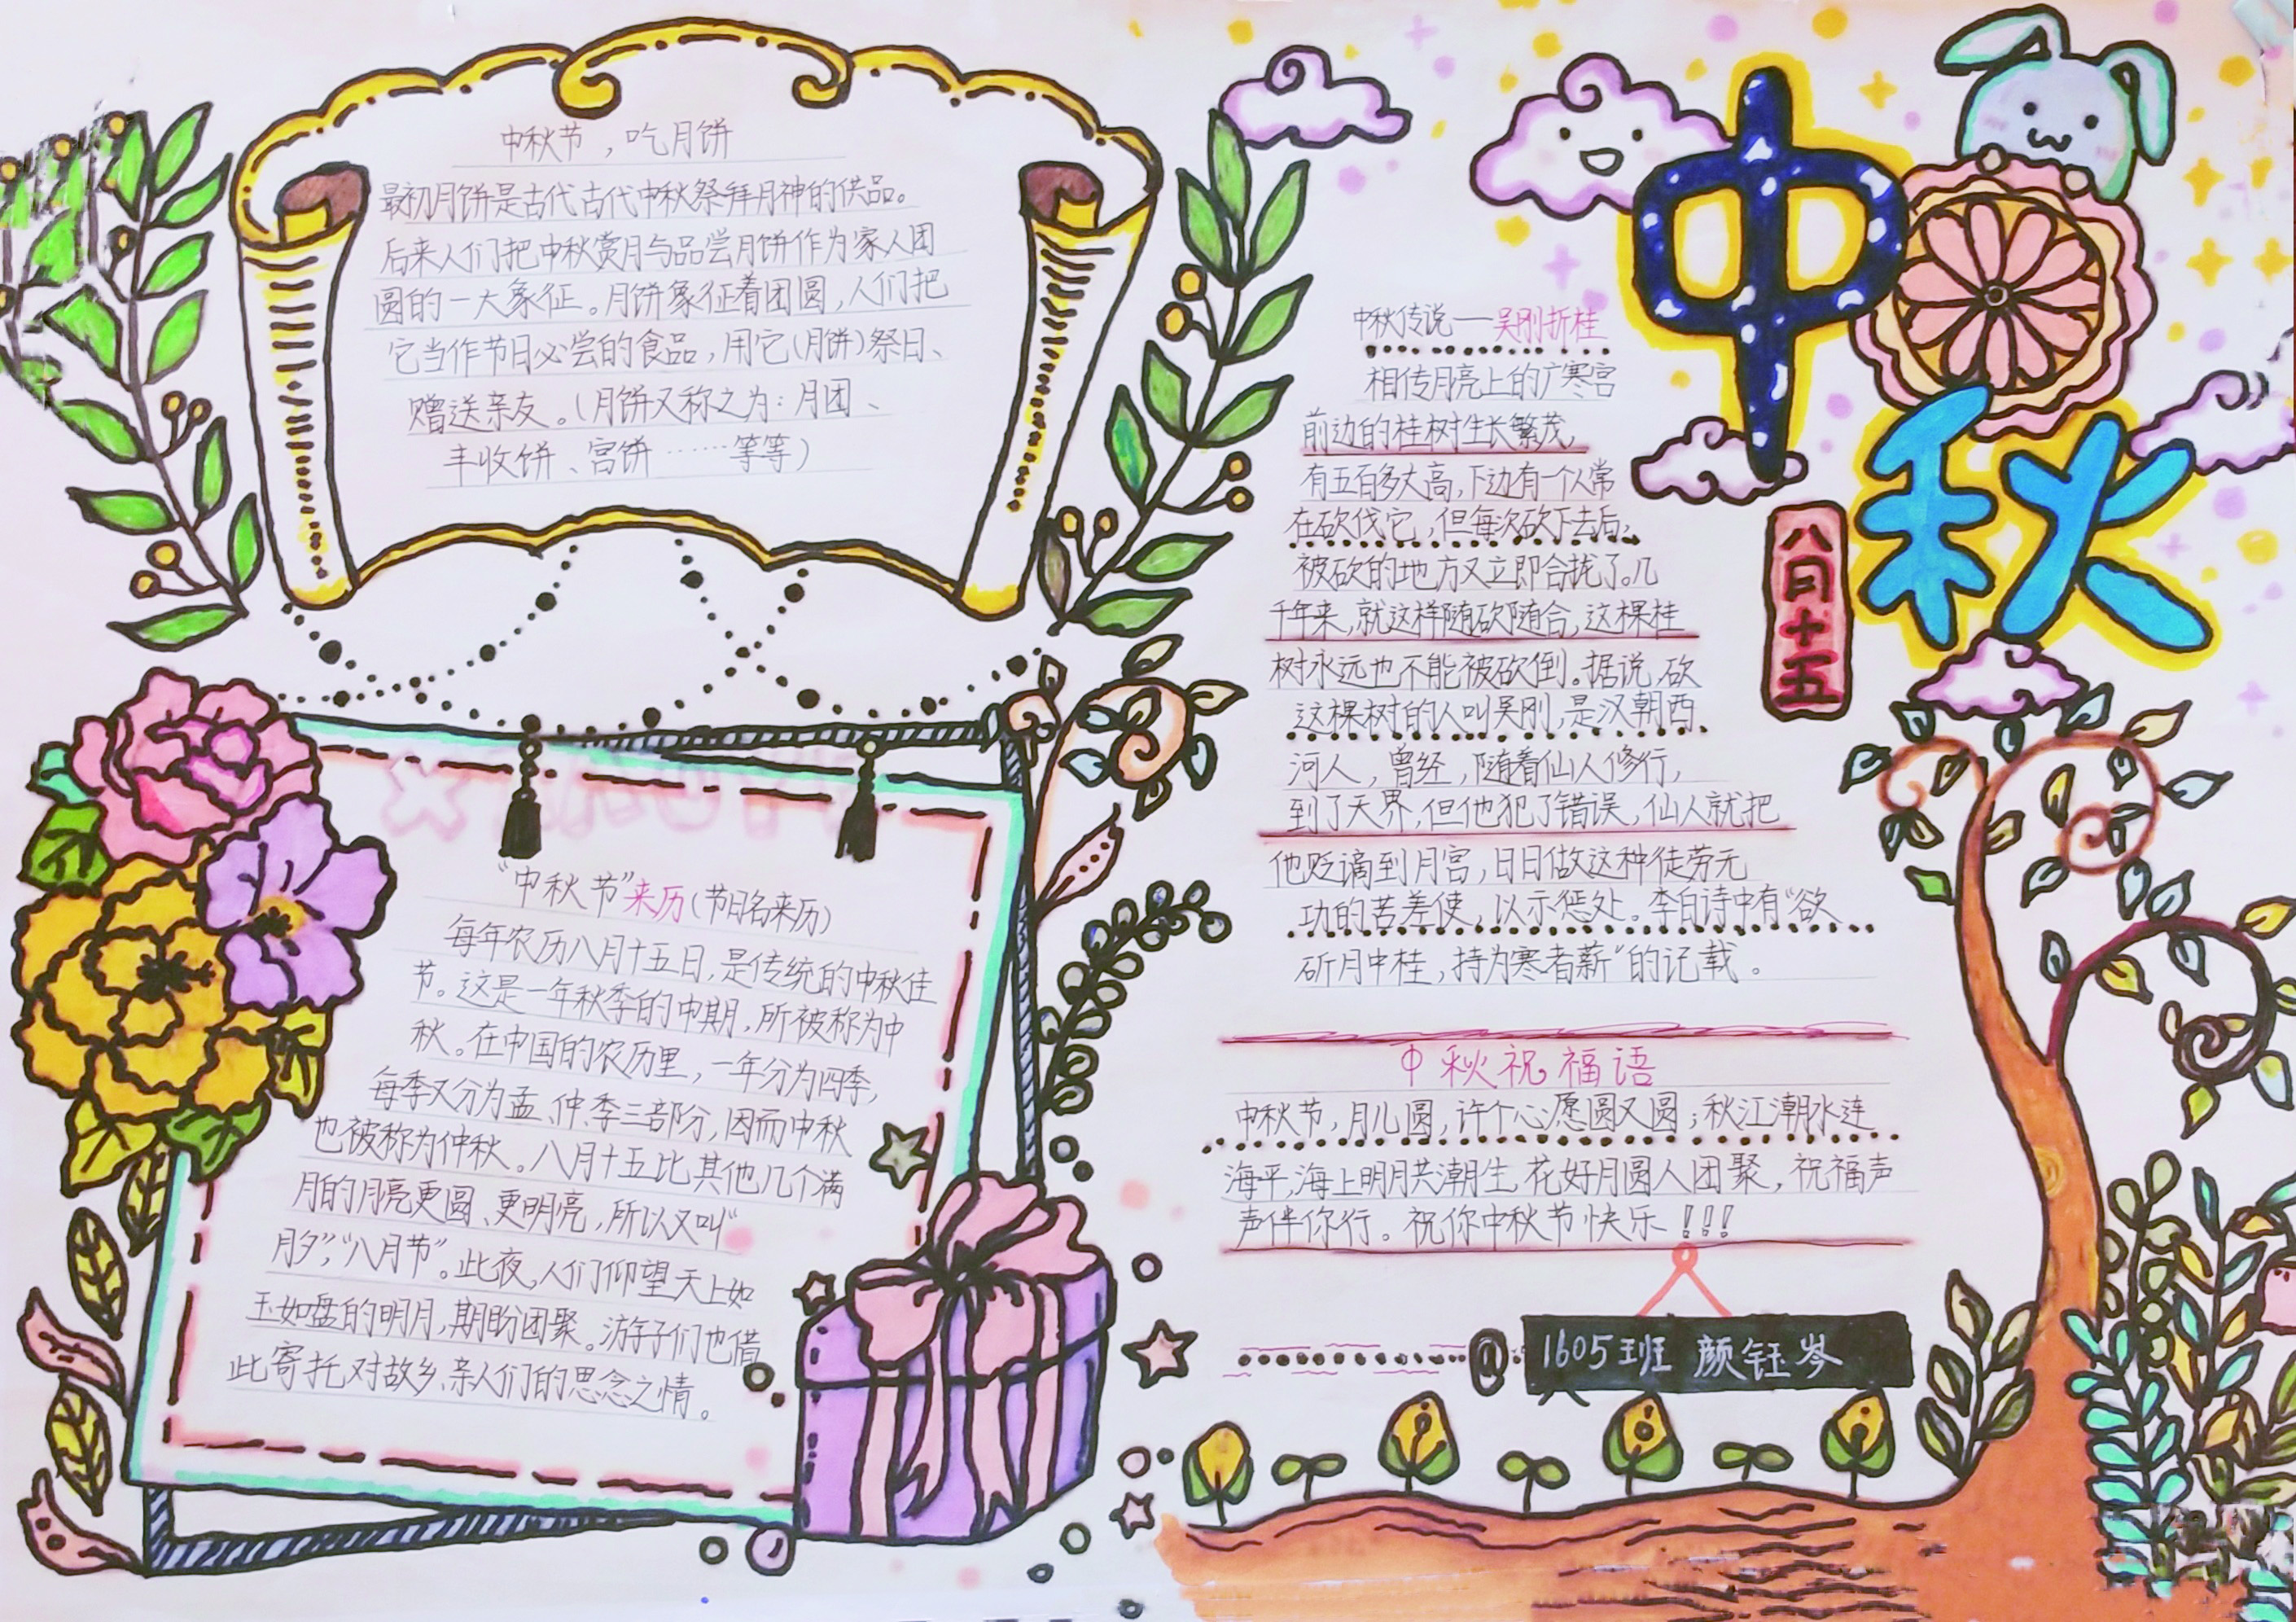 中秋节，吃月饼
最初月饼是古代古代中秋祭拜月神的供品。
后来人们把中秋赏月与品尝月饼作为家人团
圆的一大象征。月饼象征着团圆，人们把
它当作节日必尝的食品，用它(月饼)祭日、
赠送亲友。(月饼又称之为：月团、
丰收饼、宫饼……等等)
“中秋节”来历(节日名来历)
每年农历八月十五日，是传统的中秋佳
节。这是一年秋季的中期，所被称为中
秋。在中国的农历里，一年分为四季，
每季又分为孟、仲、季三部分，因而中秋
也被称为仲秋。八月十五比其他几个满
月的月亮更圆、更明亮，所以又叫“
月夕”，“八月节”。此夜，人们仰望天上如
玉如盘的明月，期盼团聚。游子们也借
此寄托对故乡、亲人们的思念之情。
中秋
八月十五
中秋传说—吴刚折桂
相传月亮上的广寒宫
前边的桂树生长繁茂，
有五百多丈高，下边有一个人常
在砍伐它，但每次砍下去后，
被砍的地方又立即合拢了。几
千年来，就这样随砍随合，这棵桂
树永远也不能被砍倒。据说，砍
这棵树的人叫吴刚，是汉朝西
河人，曾经，随着仙人修行，
到了天界，但他犯了错误，仙人就把
他贬谪到月宫，日日做这种徒劳无
功的苦差使，以示惩处。李白诗中有“欲
斫月中桂，持为寒者薪”的记载。
中秋祝福语
中秋节，月儿圆，许个心愿圆又圆；秋江潮水连
海平，海上明月共潮生，花好月圆人团聚，祝福声
声伴你行。祝你中秋节快乐！！！
1605班 颜钰岑